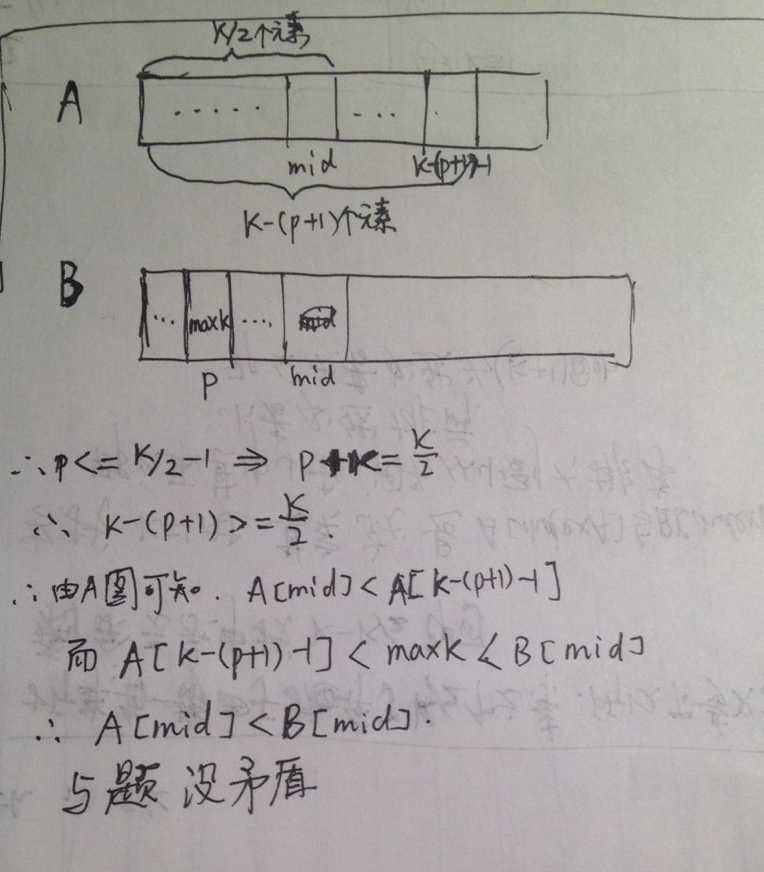 K/2个元素
A ..... ... .
mid K-(p+1)-1
K-(p+1)个元素
B ... maxk .... mid
p mid
∴ p<= K/2-1 ⇒ p+1<= K/2
∴ K-(p+1)>= K/2.
∴ 由A图可知. A[mid]<A[K-(p+1)-1]
而 A[K-(p+1)-1]< maxK < B[mid]
∴ A[mid]<B[mid].
与题设矛盾